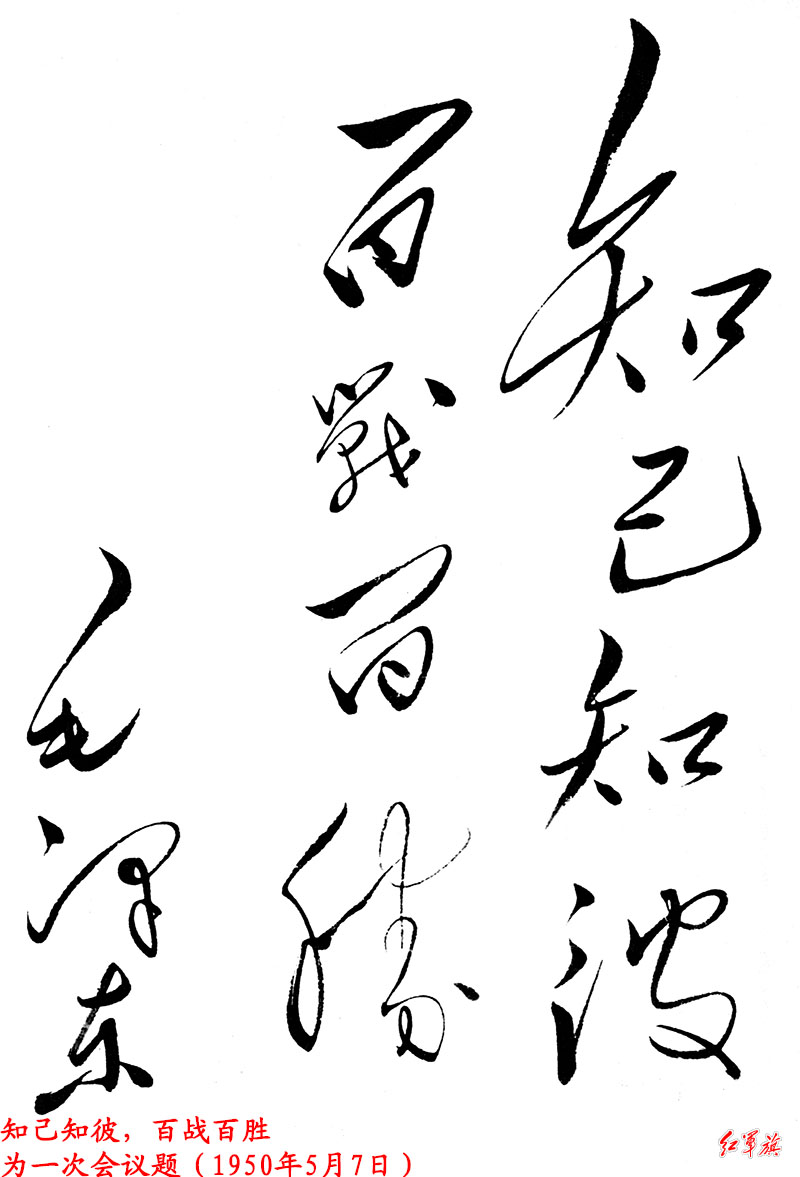 知己知彼
百戰百勝
毛泽东
知己知彼，百战百胜
为一次会议题（1950年5月7日）
红军旗